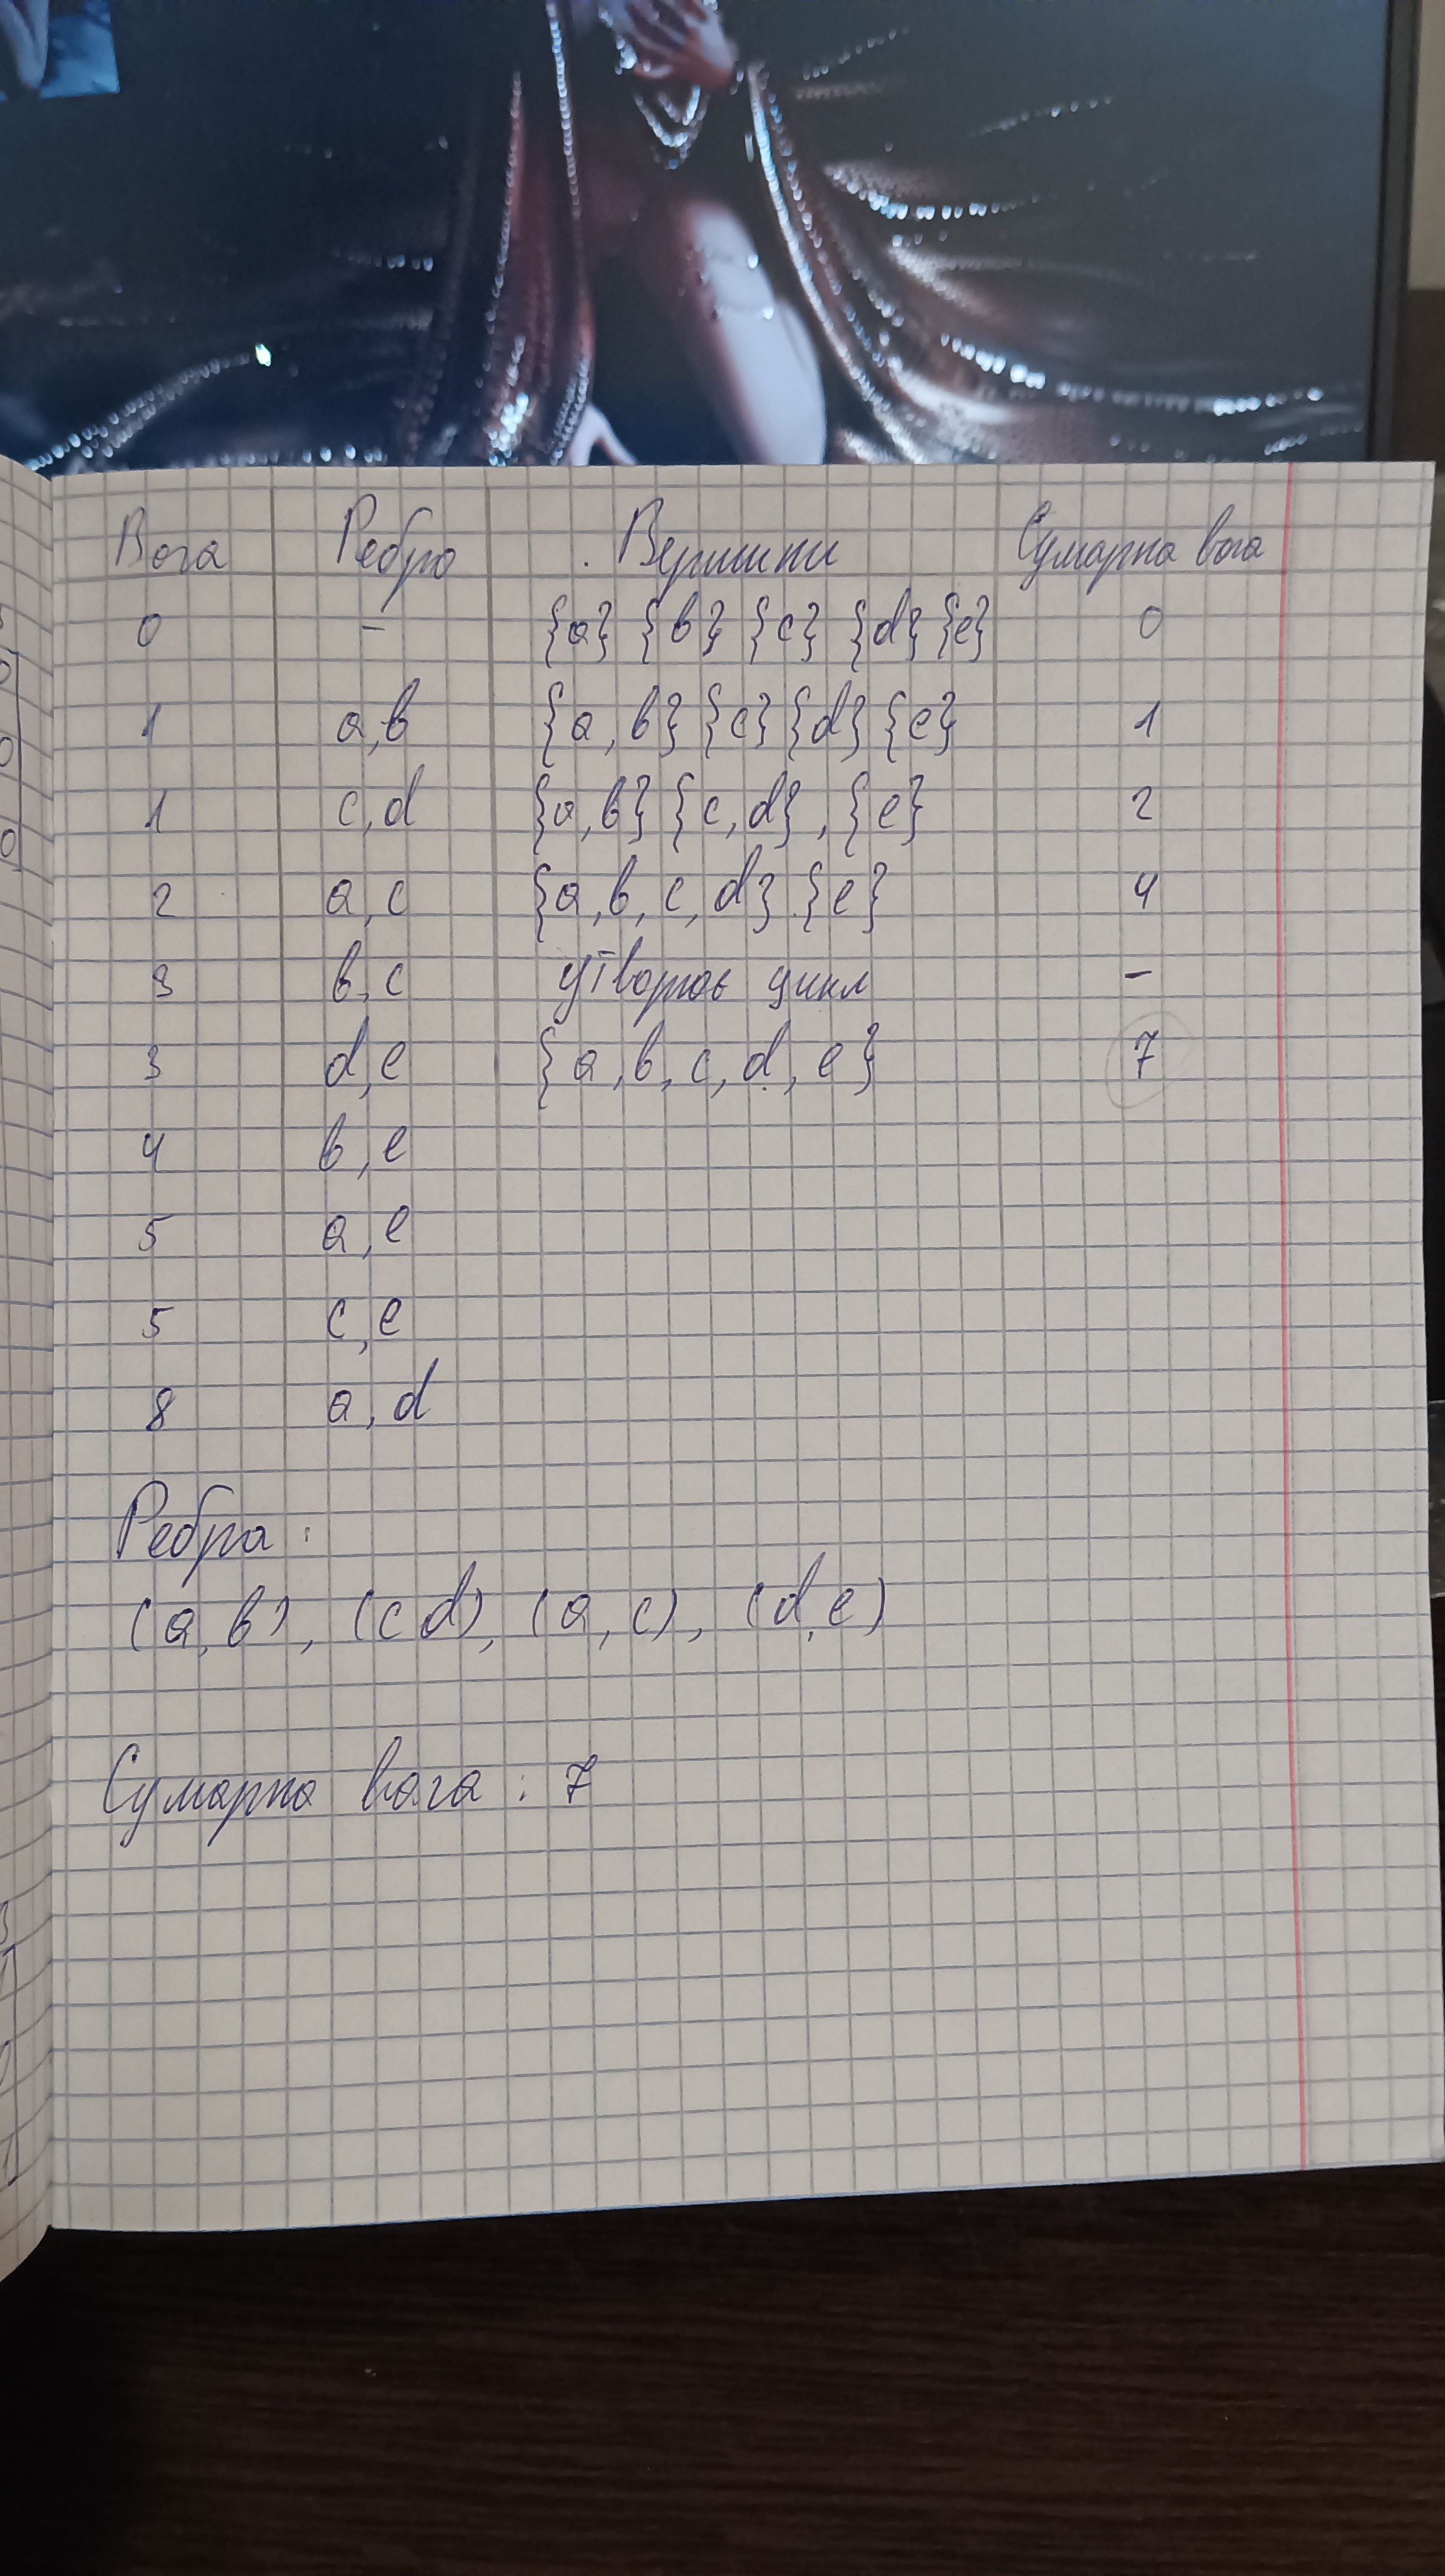 Вага Ребро Вершини Сумарна вага
0 – {a} {b} {c} {d} {e} 0
1 a,b {a,b} {c} {d} {e} 1
1 c,d {a,b} {c,d}, {e} 2
2 a,c {a,b,c,d} {e} 4
3 b,c утворює цикл –
3 d,e {a,b,c,d,e} 7
4 b,e
5 a,e
5 c,e
8 a,d
Ребра:
(a,b), (c d), (a,c), (d,e)
Сумарна вага: 7